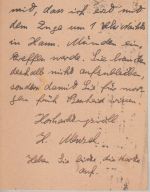 mit, dass ich erst mit
dem Zuge um 1 Uhr
in Hann. Münden ein
treffen werde. Sie brauchen
deshalb nicht aufzubleiben
sondern damit Sie für mor
gen früh Bescheid
Hochachtungsvoll
H.
Heben Sie bitte die Karte
auf.